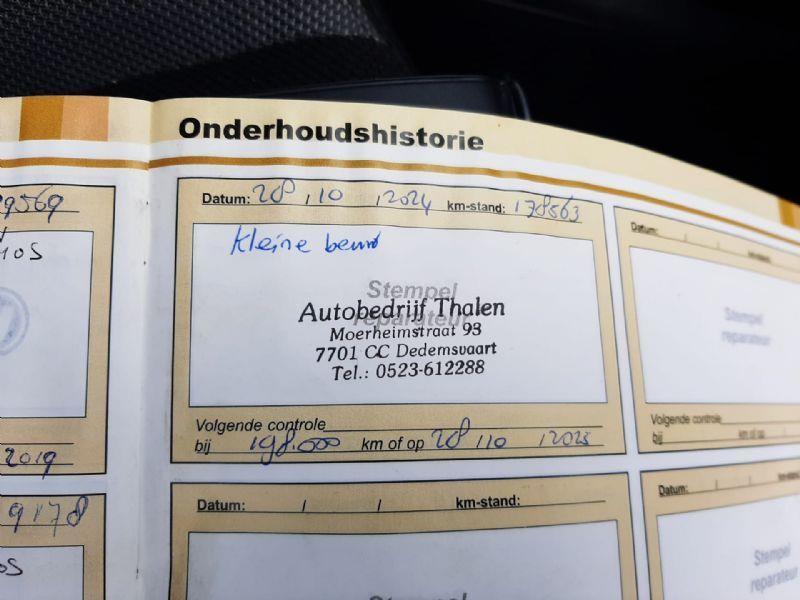 Onderhoudshistorie
9569
10S
2019
9178
os
Datum: 28 / 10 / 2024 km-stand: 178563
Kleine beurt
Stempel
reparateur
Autobedrijf Thalen
Moerheimstraat 93
7701 CC Dedemsvaart
Tel.: 0523-612288
Volgende controle
bij 198.000 km of op 28 / 10 / 2025
Datum: / / km-stand:
Stempel
reparateur
Volgende controle
bij km of op /
Datum: / / km-stand:
Stempel
Datum: / / km-stand:
Stempel
reparateur